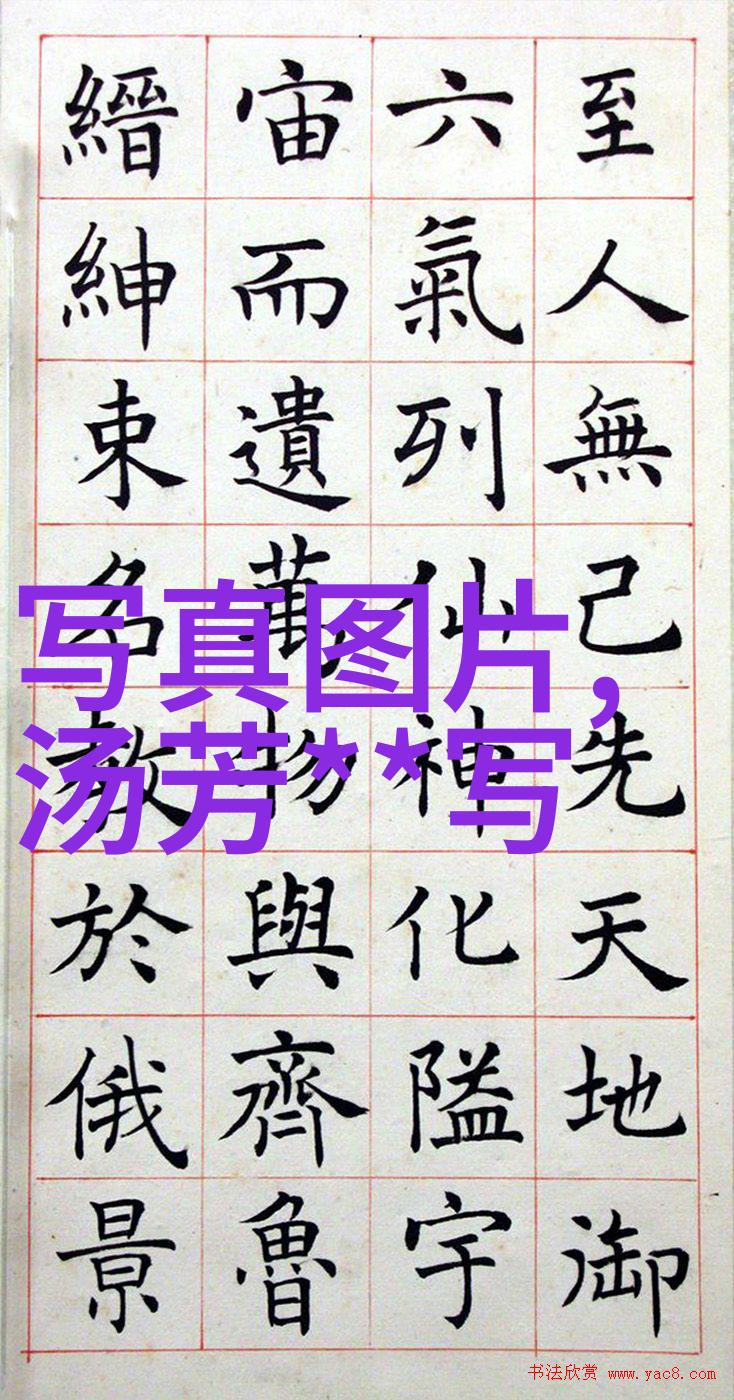 至人無己先天地御
六氣列仙神化隘宇
宙而遺萬物與齊魯
縉紳束名教於俄景
写真图片,
汤芳**写
书法欣赏 www.yac8.com